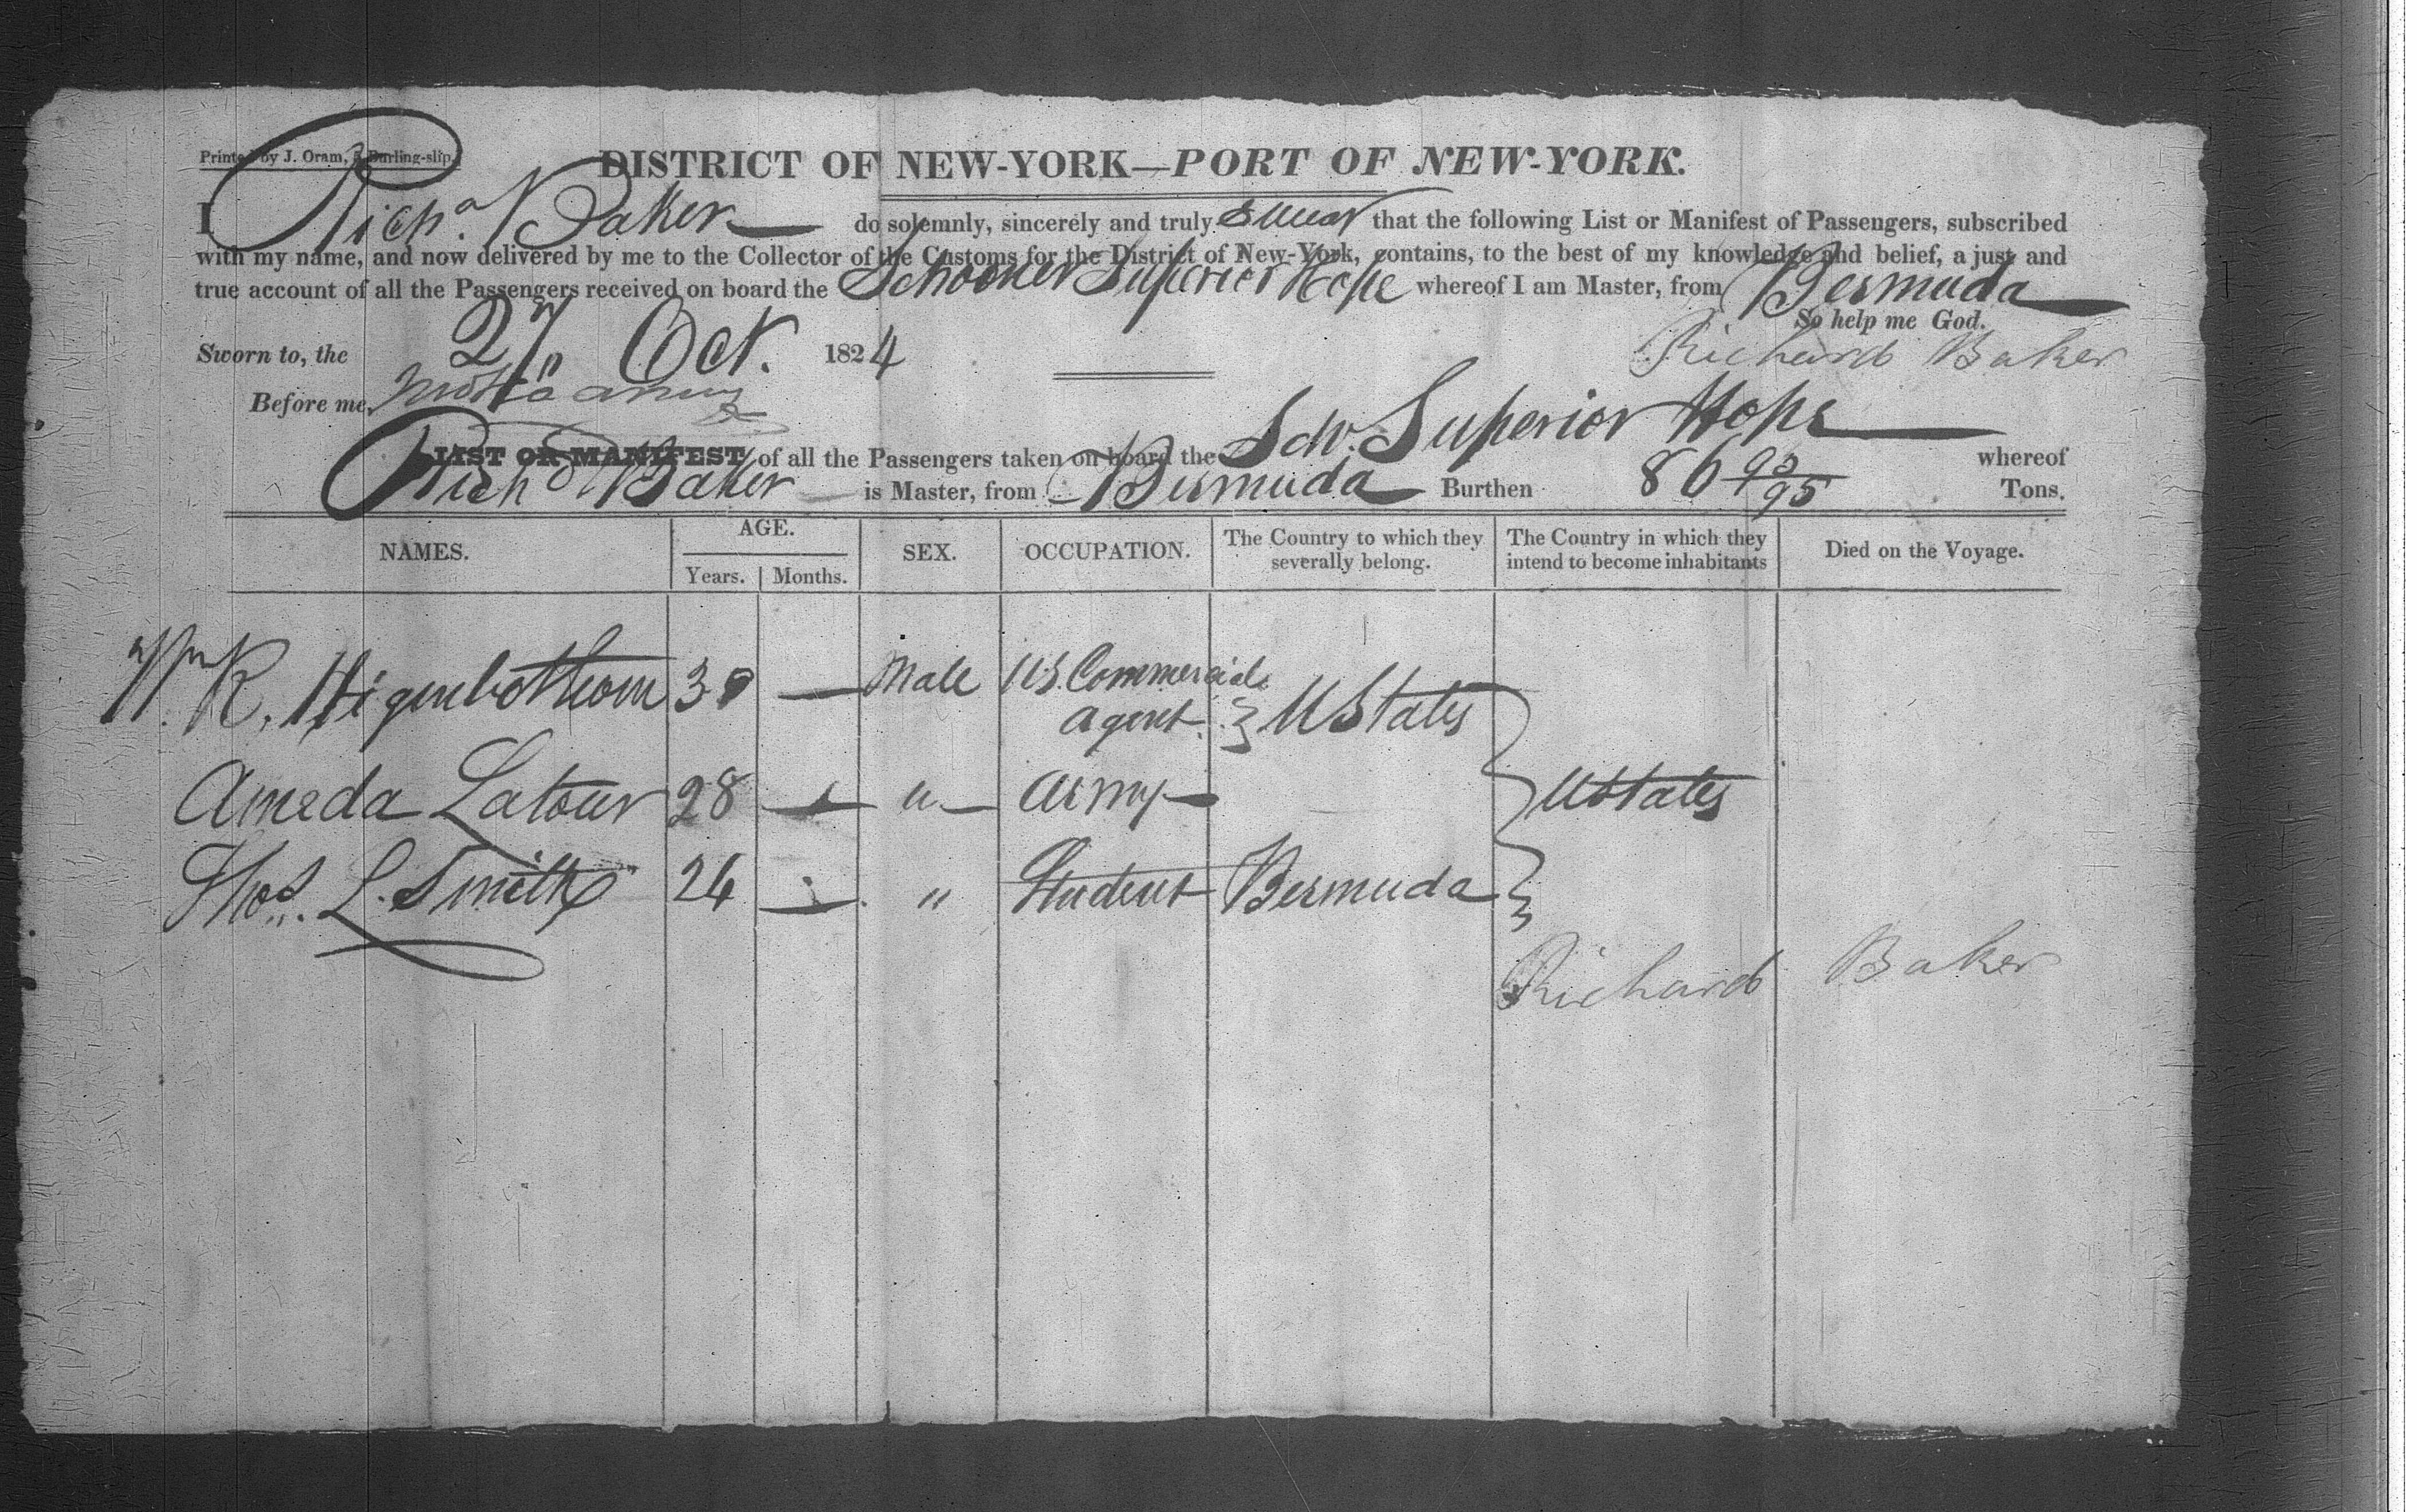 Printed by J. Oram, 5 Burling-slip.
DISTRICT OF NEW-YORK—PORT OF NEW-YORK.
I Richd. Baker do solemnly, sincerely and truly swear that the following List or Manifest of Passengers, subscribed
with my name, and now delivered by me to the Collector of the Customs for the District of New-York, contains, to the best of my knowledge and belief, a just and
true account of all the Passengers received on board the Schooner Superior Hope whereof I am Master, from Bermuda
So help me God.
Sworn to, the 27 Oct. 1824
Richard Baker
Before me,
LIST OR MANIFEST of all the Passengers taken on board the Schr. Superior Hope whereof
Richd Baker is Master, from Bermuda Burthen 86 93/95 Tons.
NAMES. AGE. Years. Months. SEX. OCCUPATION. The Country to which they severally belong. The Country in which they intend to become inhabitants Died on the Voyage.
Wm. R. Higinbothom 30 — Male US. Commercial Agent. } UStates
Ameda Latour 28 — " — Army — } UStates
Thos. L. Smith 24 — " Student Bermuda
Richard Baker